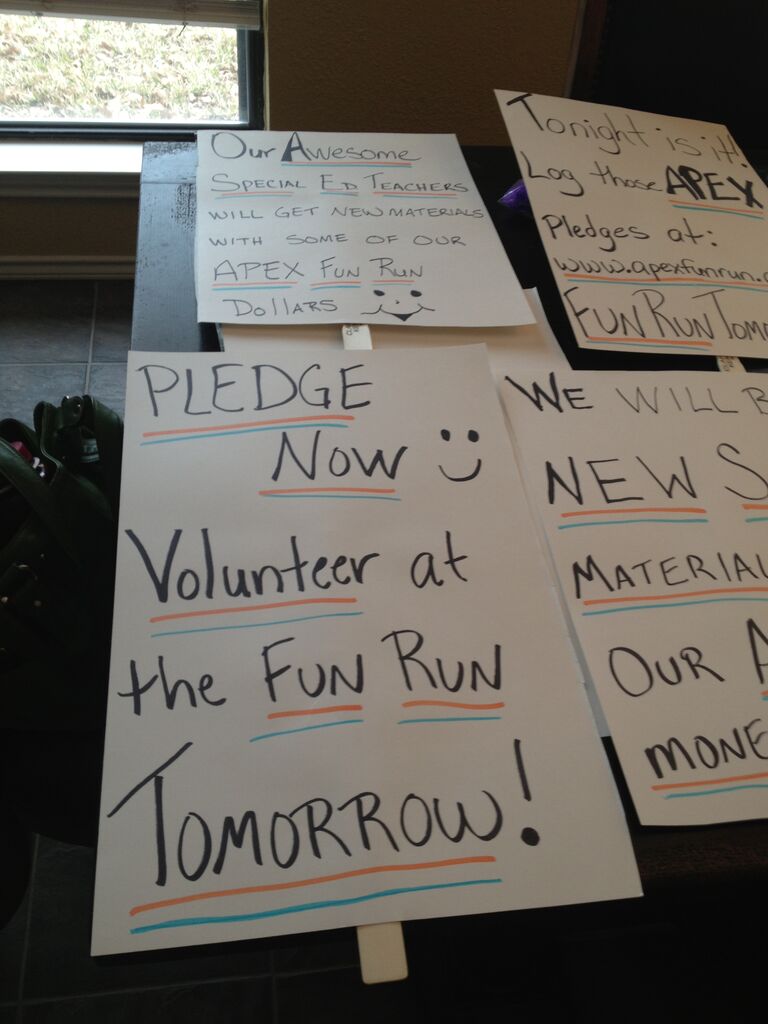 Our Awesome
Special Ed Teachers
will get new materials
with some of our
APEX Fun Run
Dollars
Tonight is it!
Log those APEX
Pledges at:
www.apexfunrun.
Fun Run
Pledge
Now
Volunteer at
the Fun Run
Tomorrow!
We will
New
Our